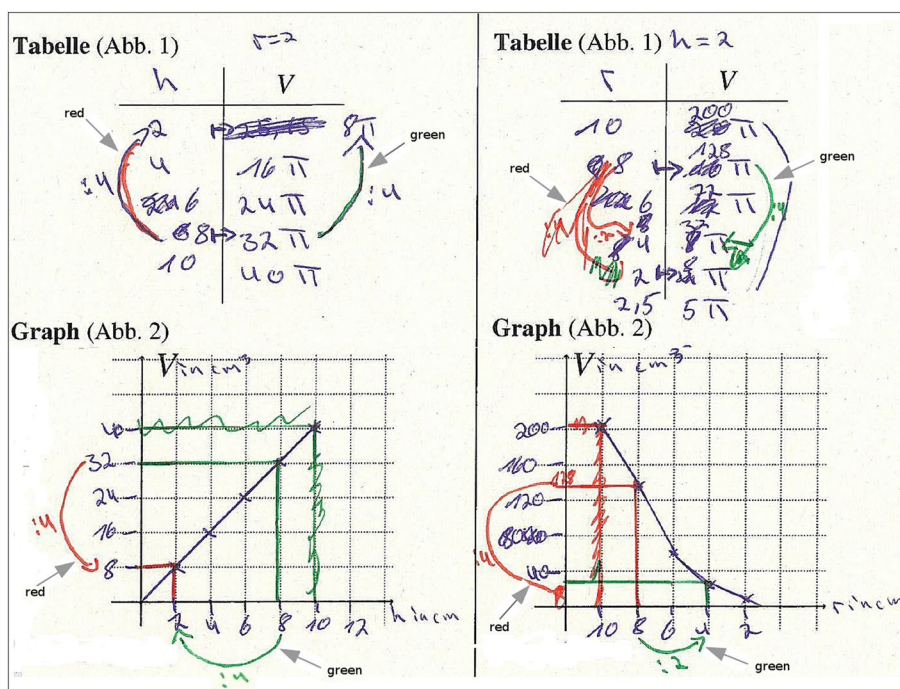 Tabelle (Abb. 1) r=2
h V
2 8π
4 16π
6 24π
8 32π
10 40π
red
:4
green
:4
Graph (Abb. 2)
V in cm³
40
32
24
16
8
2 4 6 8 10 12 h in cm
:4
red
:4
green
Tabelle (Abb. 1) h=2
r V
10 200π
8 128π
6 72π
4 32π
2 8π
2,5 5π
red
green
:4
Graph (Abb. 2)
V in cm³
200
160
128
120
80
40
10 8 6 4 2 r in cm
:4
red
:2
green